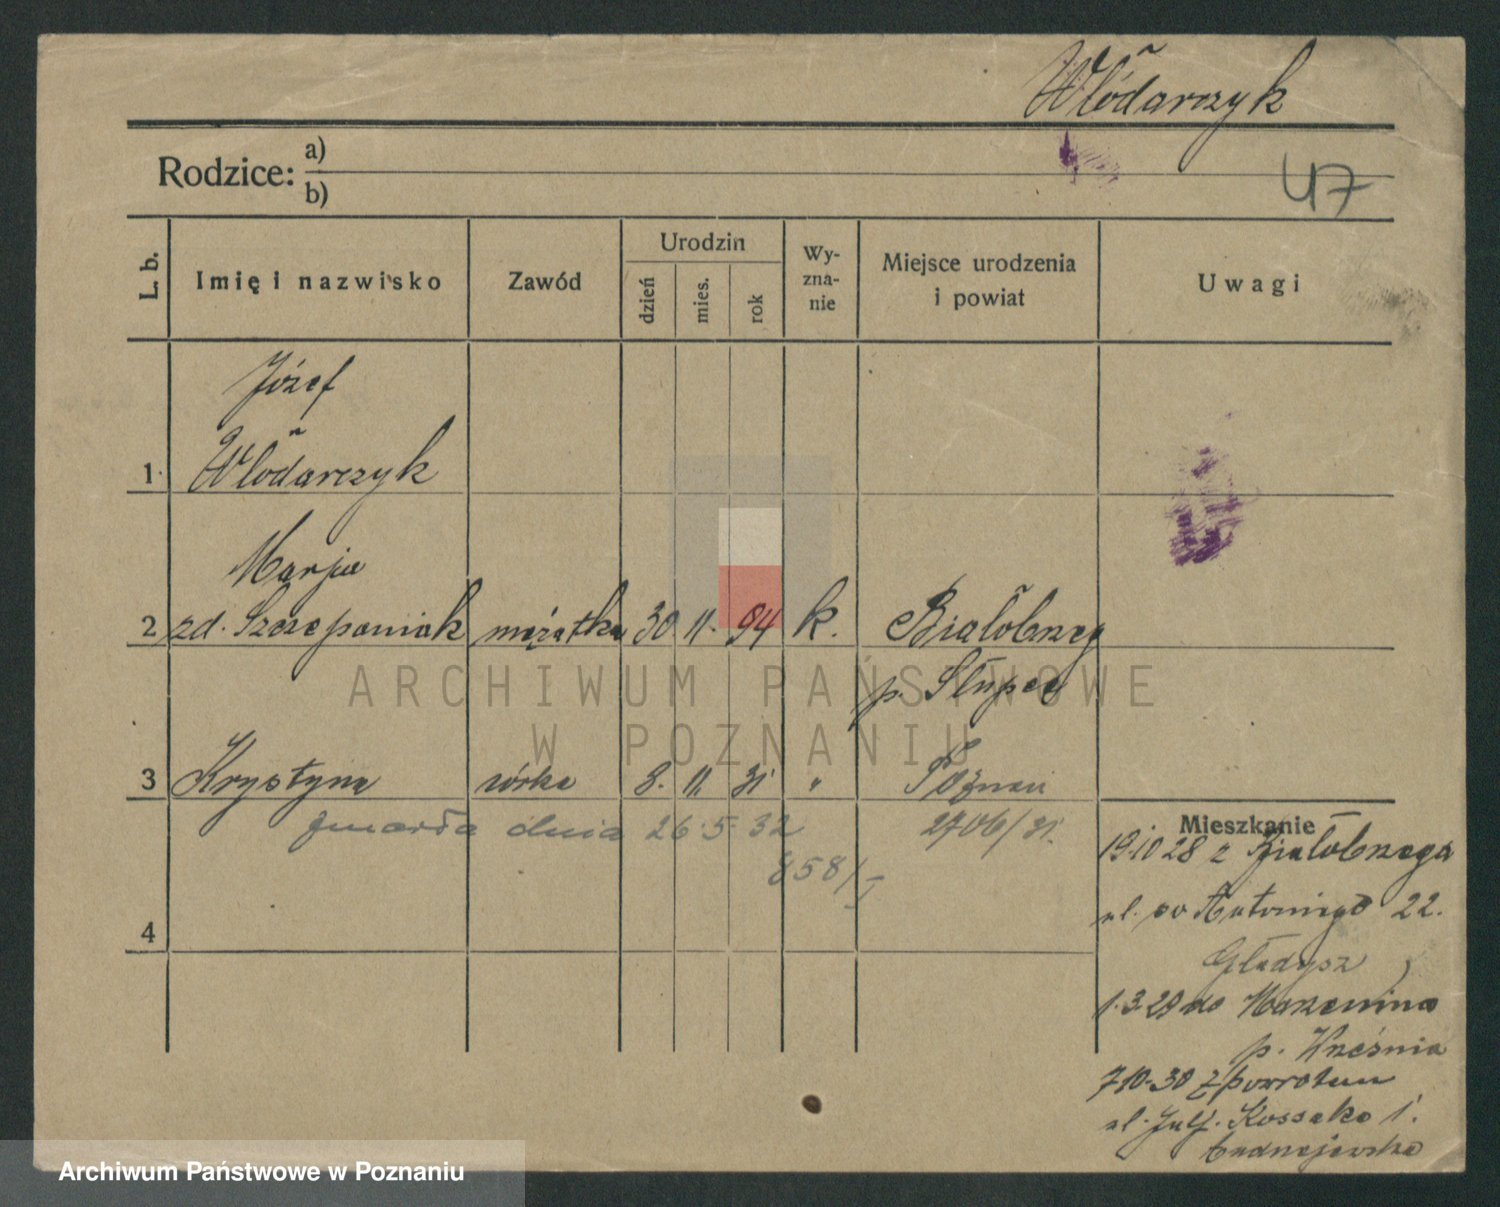 Włódarczyk
Rodzice: a)
b)
47
L. b. Imię i nazwisko Zawód Urodzin dzień mies. rok Wy-zna-nie Miejsce urodzenia i powiat Uwagi
Józef
1 Włodarczyk
Marja
2 zd. Szczepaniak mężatka 30 11. 94 k. Białobrzeg
p. Słupca
3 Krystyna córka 8. 11. 31 " Poznań
zmarła dnia 26.5.32 2706/31.
858/I
4
Mieszkanie
19.10 28 z Białobrzega
ul. św Antoniego 22.
Gładysz
1.3.29 do Marzenina
p. Września
7 10-30 z powrotem
ul. Julj. Kossaka 1.
ARCHIWUM PAŃSTWOWE
W POZNANIU
Archiwum Państwowe w Poznaniu